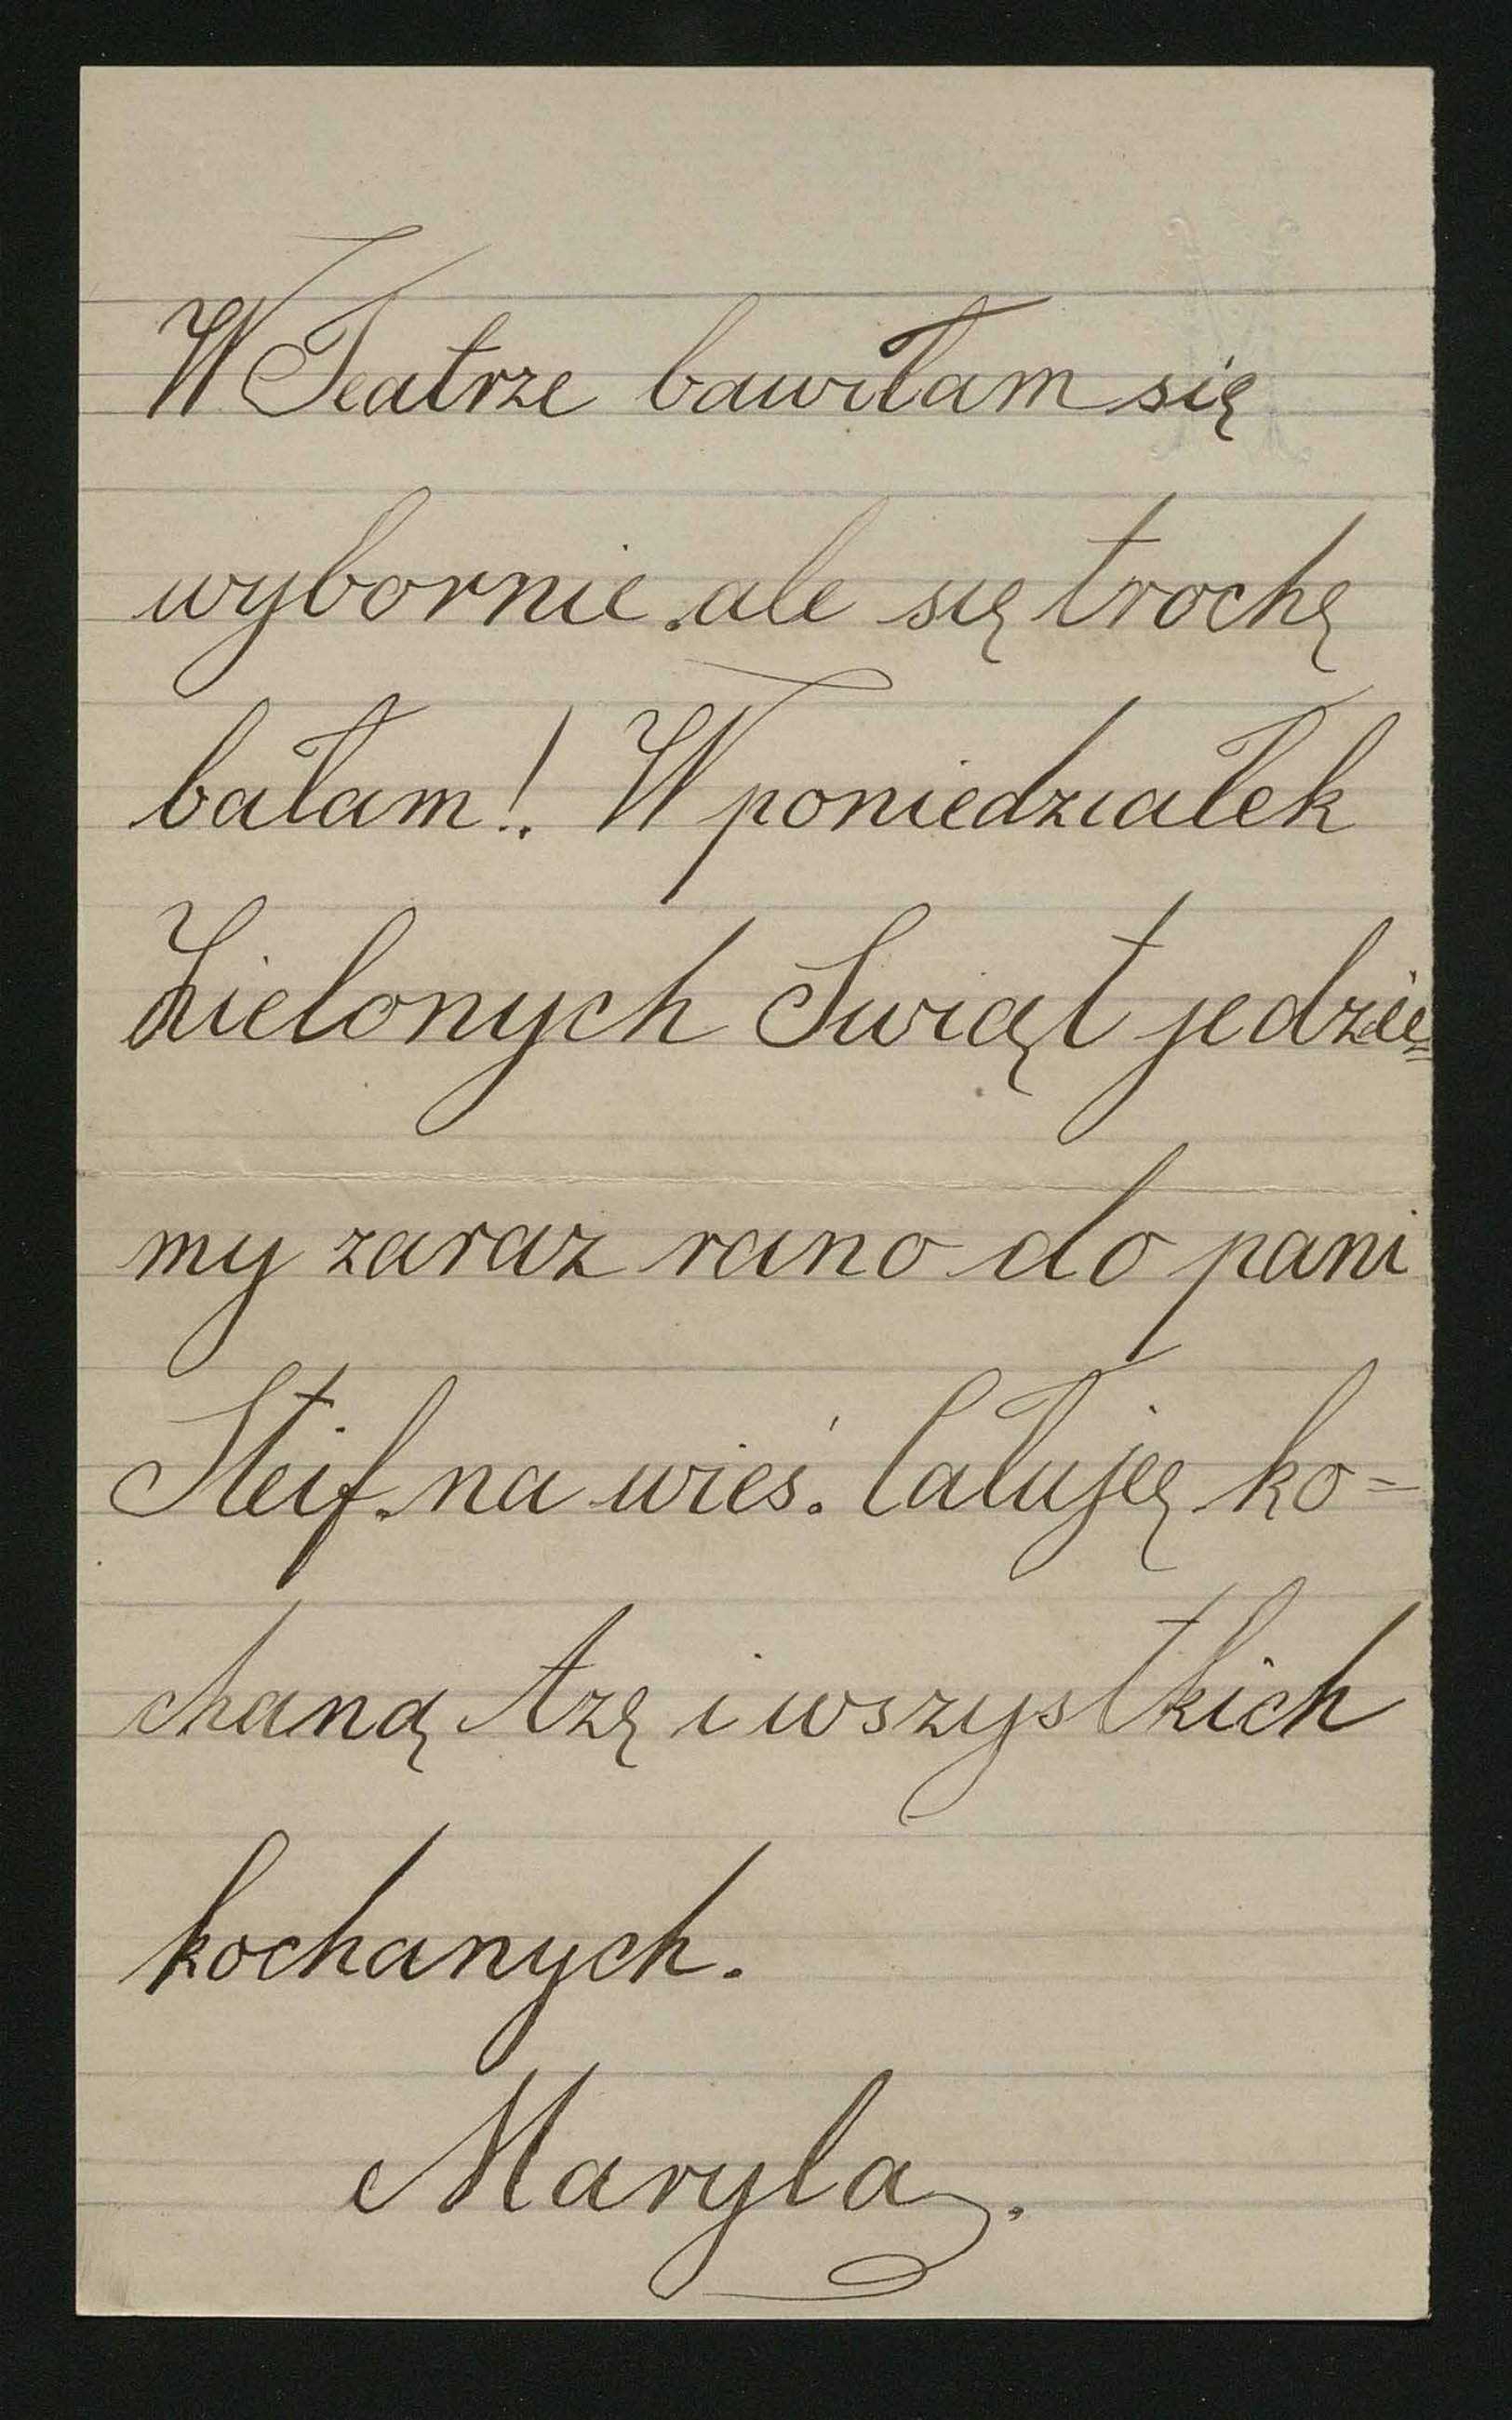 W Teatrze bawiłam się
wybornie. ale się trochę
bałam! W poniedziałek
Zielonych Swiąt jedzie=
my zaraz rano do pani
Steif. na wieś. Całuję ko=
chaną Azę i wszystkich
kochanych.
Maryla.